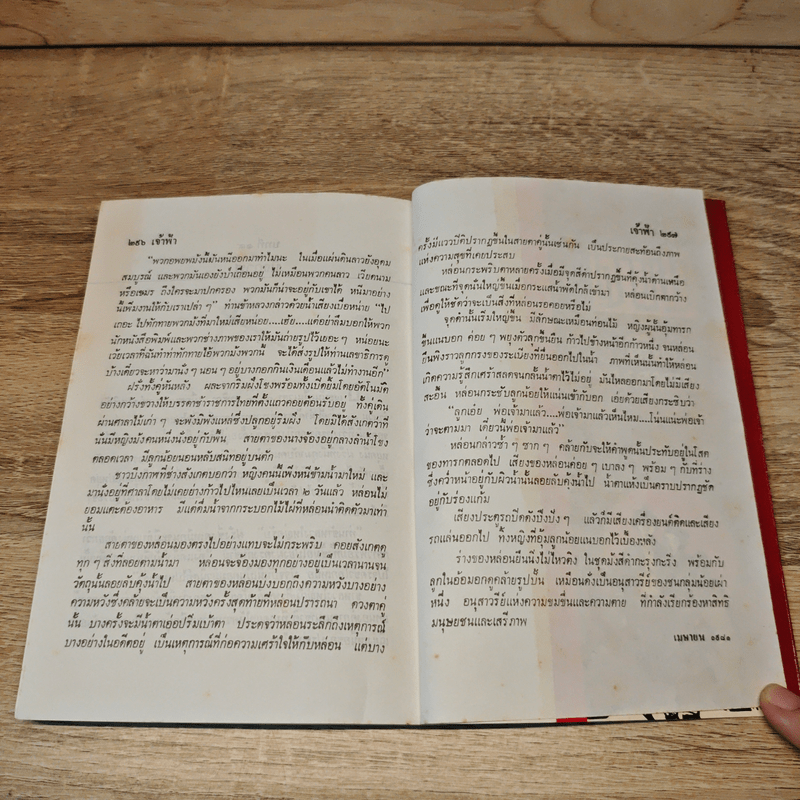 ๒๕๖ เจ้าฟ้า
"พวกอพยพม้งนี้มันหนีออกมาทำไมนะ ในเมื่อแผ่นดินลาวยังอุดม
สมบูรณ์ และพวกมันเองยังป่าเถื่อนอยู่ ไม่เหมือนพวกคนลาว เวียดนาม
หรือเขมร ถึงใครจะมาปกครอง พวกมันก็น่าจะอยู่กับเขาได้ หนีมาอย่าง
นี้เพิ่มงานให้กับเราเปล่า ๆ" ท่านข้าหลวงกล่าวด้วยน้ำเสียงเบื่อหน่าย "ไป
เถอะ ไปทักทายพวกม้งที่มาใหม่เสียหน่อย....เฮ้ย....แต่อย่าลืมบอกให้พวก
นักหนังสือพิมพ์และพวกช่างภาพของเราให้มันถ่ายรูปไว้เยอะ ๆ หน่อยนะ
เว้ยเวลาที่ฉันทำท่าทักทายไอ้พวกม้งพวกนี้ จะได้ส่งรูปให้ท่านเลขาธิการดู
บ้างเดี๋ยวจะหาว่ามานั่ง ๆ นอน ๆ อยู่บางกอกกินเงินเดือนแล้วไม่ทำงานอีก"
ฝรั่งทั้งคู่หันหลัง ผละจากริมฝั่งโขงพร้อมทั้งเปิดยิ้มโดยอัตโนมัติ
อย่างกว้างขวางให้บรรดาข้าราชการไทยที่ตั้งแถวคอยต้อนรับอยู่ ทั้งคู่เดิน
ผ่านศาลาไม้เก่า ๆ จะพังมิพังแหล่ซึ่งปลูกอยู่ริมฝั่ง โดยมิได้สังเกตว่าที่
นั่นมีหญิงม้งคนหนึ่งนั่งอยู่กับพื้น สายตาของนางจ้องอยู่กลางลำน้ำโขง
ตลอดเวลา มีลูกน้อยนอนหลับสนิทอยู่บนตัก
ชาวบึงกาฬที่ช่างสังเกตบอกว่า หญิงคนนี้เพิ่งหนีข้ามน้ำมาใหม่ และ
มานั่งอยู่ที่ศาลาโดยไม่เคยย่างก้าวไปไหนเลยเป็นเวลา ๒ วันแล้ว หล่อนไม่
ยอมแตะต้องอาหาร มีแต่ดื่มน้ำจากกระบอกไม้ไผ่ที่หล่อนนำติดตัวมาเท่า
นั้น
สายตาของหล่อนมองตรงไปอย่างแทบจะไม่กระพริบ คอยสังเกตดู
ทุก ๆ สิ่งที่ลอยตามน้ำมา หล่อนจะจ้องมองทุกอย่างอยู่เป็นเวลานานจน
วัตถุนั้นลอยลับคุ้งน้ำไป สายตาของหล่อนบ่งบอกถึงความหวังบางอย่าง
ความหวังซึ่งคล้ายจะเป็นความหวังครั้งสุดท้ายที่หล่อนปรารถนา ดวงตาคู่
นั้น บางครั้งจะมีน้ำตาเอ่อปริ่มเบ้าตา ประดุจว่าหล่อนระลึกถึงเหตุการณ์
บางอย่างในอดีตอยู่ เป็นเหตุการณ์ที่ก่อความเศร้าใจให้กับหล่อน แต่บาง
เจ้าฟ้า ๒๕๗
ครั้งมีแววปีติปรากฏขึ้นในสายตาคู่นั้นเช่นกัน เป็นประกายสะท้อนถึงภาพ
แห่งความสุขที่เคยประสบ
หล่อนกระพริบตาหลายครั้งเมื่อมีจุดสีดำปรากฏขึ้นที่คุ้งน้ำด้านเหนือ
และขณะที่จุดนั้นใหญ่ขึ้นเมื่อกระแสน้ำพัดใกล้เข้ามา หล่อนเบิกตากว้าง
เพื่อดูให้ชัดว่าจะเป็นสิ่งที่หล่อนรอคอยหรือไม่
จุดดำนั้นเริ่มใหญ่ขึ้น มีลักษณะเหมือนท่อนไม้ หญิงผู้นั้นอุ้มทารก
ขึ้นแนบอก ค่อย ๆ พยุงตัวลุกขึ้นยืน ก้าวไปข้างหน้าอีกก้าวหนึ่ง จนหล่อน
ยืนพิงราวลูกกรงของระเบียงที่ยื่นออกไปในน้ำ ภาพที่เห็นนั้นทำให้หล่อน
เกิดความรู้สึกเศร้าสลดจนกลั้นน้ำตาไว้ไม่อยู่ มันไหลออกมาโดยไม่มีเสียง
สะอื้น หล่อนกระชับลูกน้อยให้แนบเข้ากับอก เอ่ยด้วยเสียงกระซิบว่า
"ลูกเอ๋ย พ่อเจ้ามาแล้ว....พ่อเจ้ามาแล้วเห็นไหม....โน่นแน่ะพ่อเจ้า
ว่าจะตามมา เดี๋ยวนี้พ่อเจ้ามาแล้ว"
หล่อนกล่าวซ้ำ ๆ ซาก ๆ คล้ายกับจะให้คำพูดนั้นประทับอยู่ในโสต
ของทารกตลอดไป เสียงของหล่อนค่อย ๆ เบาลง ๆ พร้อม ๆ กับที่ร่าง
ซึ่งคว่ำหน้าอยู่กับผิวน้ำนั้นลอยลับคุ้งน้ำไป น้ำตาแห้งเป็นคราบปรากฏชัด
อยู่กับร่องแก้ม
เสียงประตูรถปิดดังปังปัง ๆ แล้วก็มีเสียงเครื่องยนต์ติดและเสียง
รถแล่นออกไป ทิ้งหญิงที่อุ้มลูกน้อยแนบอกไว้เบื้องหลัง
ร่างของหล่อนยืนนิ่งไม่ไหวติง ในชุดม้งสีดำกะรุงกะริง พร้อมกับ
ลูกในอ้อมอกคล้ายรูปปั้น เหมือนดั่งเป็นอนุสาวรีย์ของชนกลุ่มน้อยเผ่า
หนึ่ง อนุสาวรีย์แห่งความขมขื่นและความตาย ที่กำลังเรียกร้องหาสิทธิ
มนุษยชนและเสรีภาพ
เมษายน ๑๙๘๑